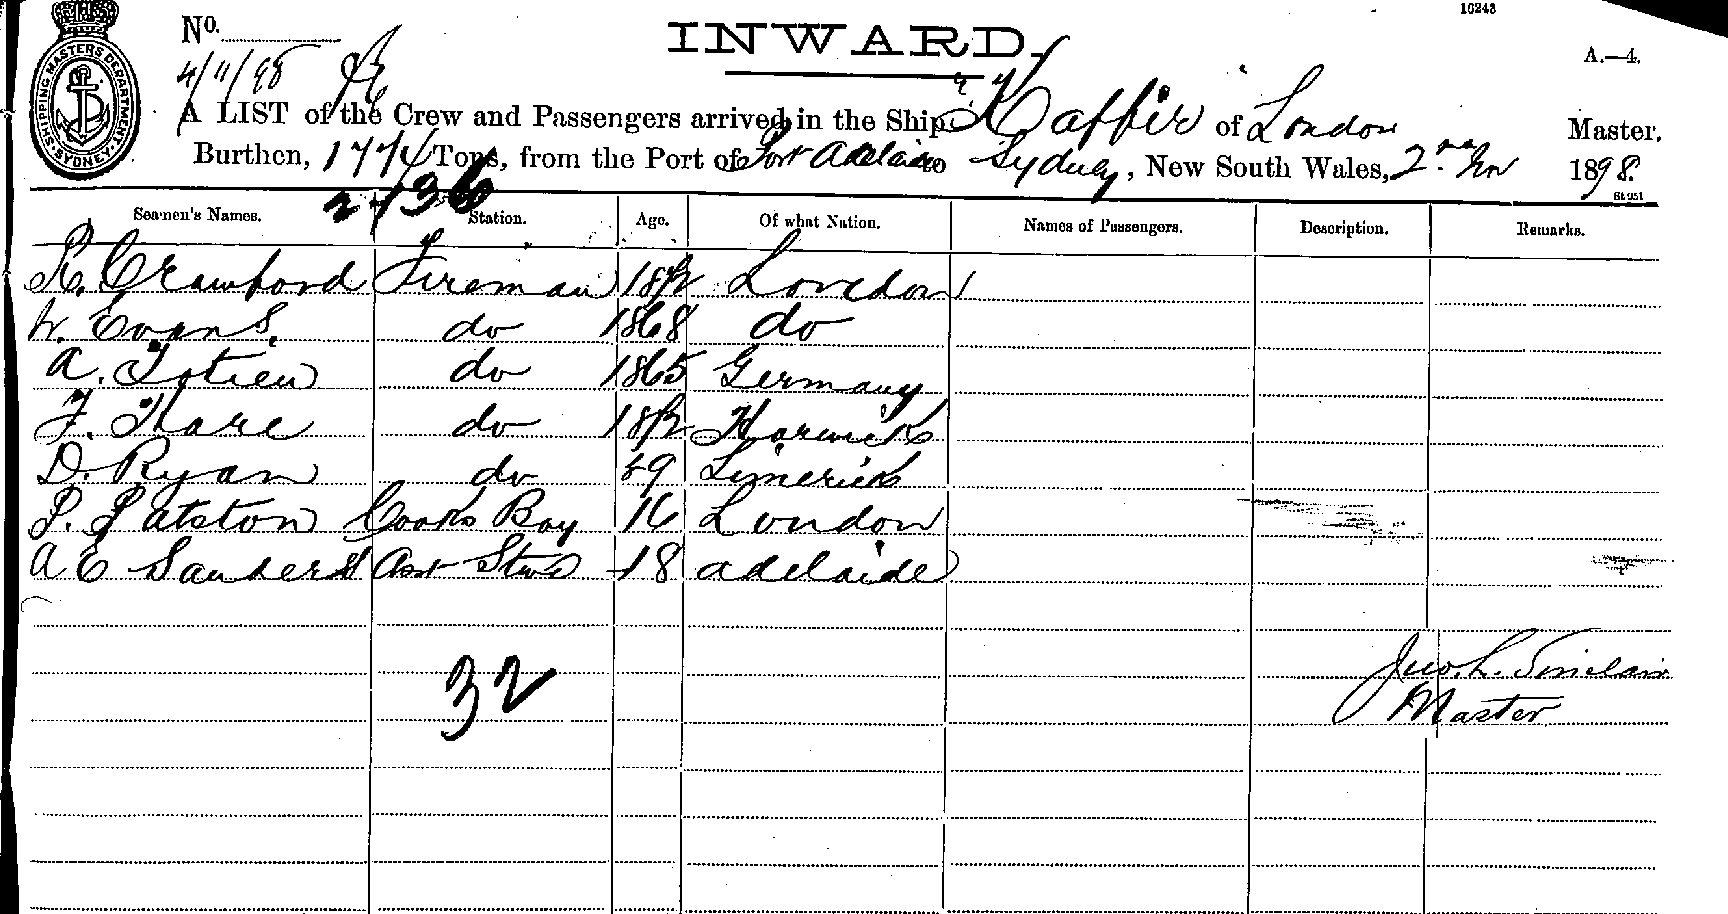 16243
No.
INWARD.
A.—4.
4/11/98
SHIPPING MASTERS DEPARTMENT SYDNEY
A LIST of the Crew and Passengers arrived in the Ship Kaffir of London Master,
Burthen, 1774 Tons, from the Port of Port Adelaide to Sydney, New South Wales, 2nd Nov 1898
2136
Seamen's Names. Station. Age. Of what Nation. Names of Passengers. Description. Remarks.
R. Crawford Fireman London
W. Evans. do 1868 do
A. do 1865 Germany
F. do Harwich
D. Ryan do Limerick
P. Patston Cooks Boy 16 London
A E Sanders Asst Stwd 18 Adelaide
Jno. L. Sinclair
Master
32